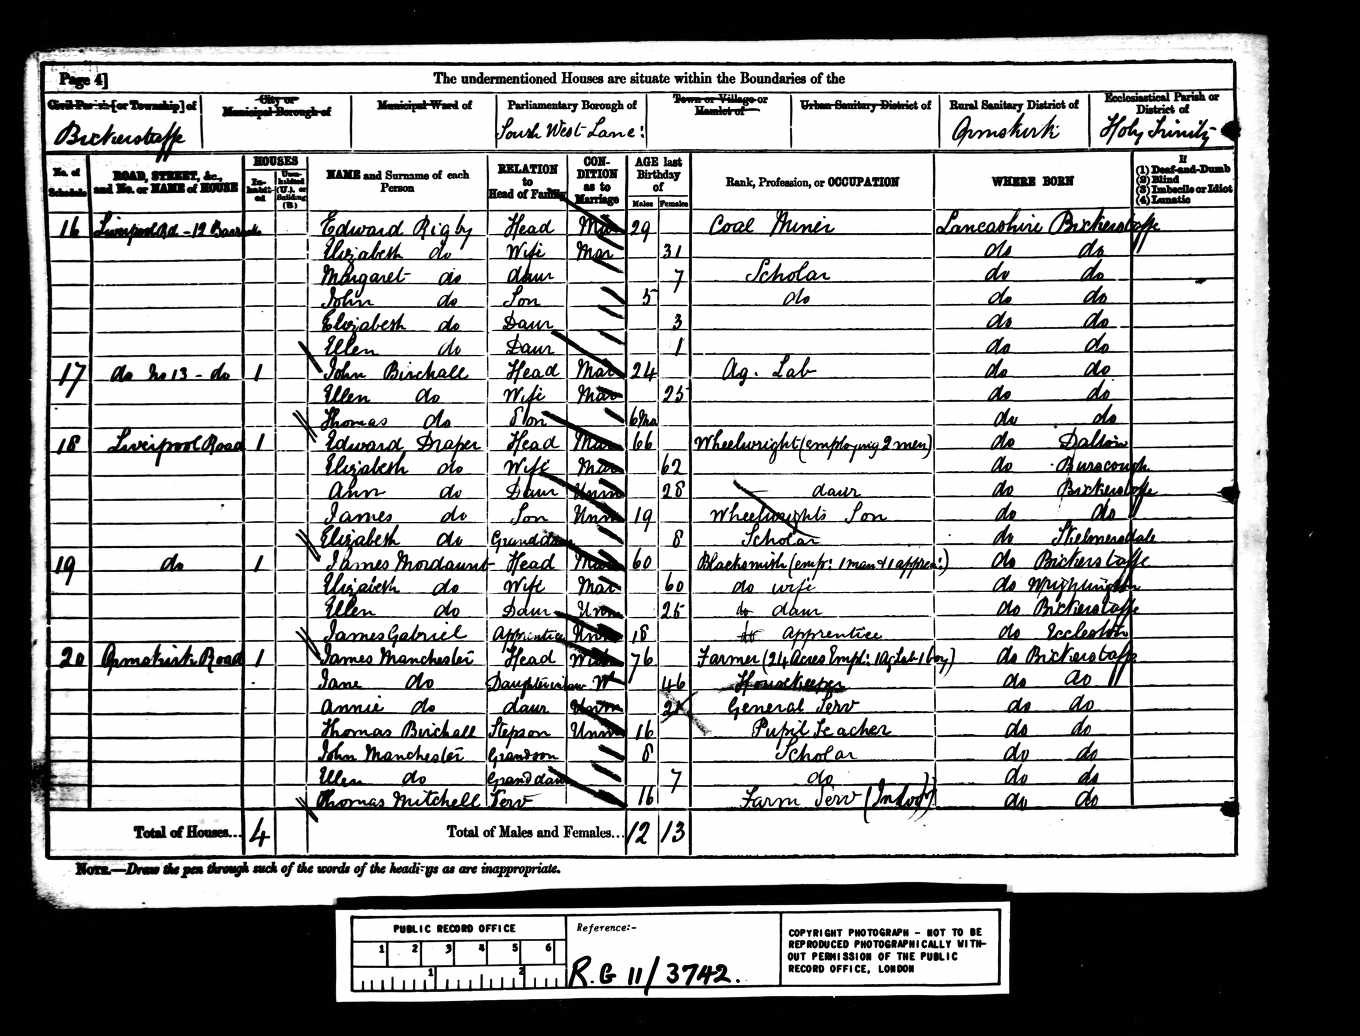 Page 4]
The undermentioned Houses are situate within the Boundaries of the
Civil Parish [or Township] of
City or Municipal Borough of
Municipal Ward of
Parliamentary Borough of
Town or Village or Hamlet of
Urban Sanitary District of
Rural Sanitary District of
Ecclesiastical Parish or District of
Bickerstaffe South West Lanc: Ormskirk Holy Trinity
No. of Schedule
ROAD, STREET, &c., and No. or NAME of HOUSE
HOUSES
Inhabited
Uninhabited (U.), or Building (B.)
NAME and Surname of each Person
RELATION to Head of Family
CONDITION as to Marriage
AGE last Birthday of
Males Females
Rank, Profession, or OCCUPATION
WHERE BORN
If
(1) Deaf-and-Dumb
(2) Blind
(3) Imbecile or Idiot
(4) Lunatic
16 Liverpool Rd - 12 Barracks Edward Rigby Head Mar 29 Coal Miner Lancashire Bickerstaffe
Elizabeth do Wife Mar 31 do do
Margaret do daur 7 Scholar do do
John do Son 5 do do do
Elizabeth do Daur 3 do do
Ellen do Daur 1 do do
17 do No 13 - do 1 John Birchall Head Mar 24 Ag. Lab do do
Ellen do Wife Mar 25 do do
Thomas do Son 6Mo do do
18 Liverpool Road 1 Edward Draper Head Mar 66 Wheelwright (employing 2 men) do Dalton
Elizabeth do Wife Mar 62 do Burscough
Ann do Daur Unm 28 daur do Bickerstaffe
James do Son Unm 19 Wheelwrights Son do do
Elizabeth do Granddaur 8 Scholar do Skelmersdale
19 do 1 James Mordaunt Head Mar 60 Blacksmith (emp: 1 man & 1 appren:) do Bickerstaffe
Elizabeth do Wife Mar 60 do wife do Wrightington
Ellen do Daur Unm 25 do daur do Bickerstaffe
James Gabriel Apprentice Unm 18 do apprentice do Eccleston
20 Ormskirk Road 1 James Manchester Head Wid 76 Farmer (24 Acres Empl: 1 Ag Lab 1 boy) do Bickerstaffe
Jane do Daughter in law W 46 Housekeeper do do
Annie do daur Unm 21 General Serv do do
Thomas Birchall Stepson Unm 16 Pupil Teacher do do
John Manchester Grandson 8 Scholar do do
Ellen do Granddaur 7 do do do
Thomas Mitchell Serv 16 Farm Serv (Indoor) do do
Total of Houses... 4 Total of Males and Females... 12 13
NOTE.—Draw the pen through such of the words of the headings as are inappropriate.
PUBLIC RECORD OFFICE
1 2 3 4 5 6
1 2
Reference:-
R.G 11/3742.
COPYRIGHT PHOTOGRAPH - NOT TO BE
REPRODUCED PHOTOGRAPHICALLY WITH-
OUT PERMISSION OF THE PUBLIC
RECORD OFFICE, LONDON